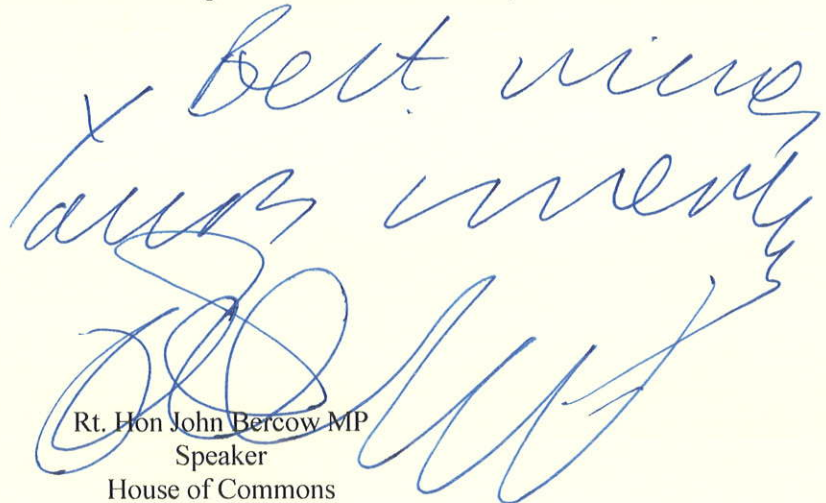 Best wishes
Yours sincerely
Rt. Hon John Bercow MP
Speaker
House of Commons